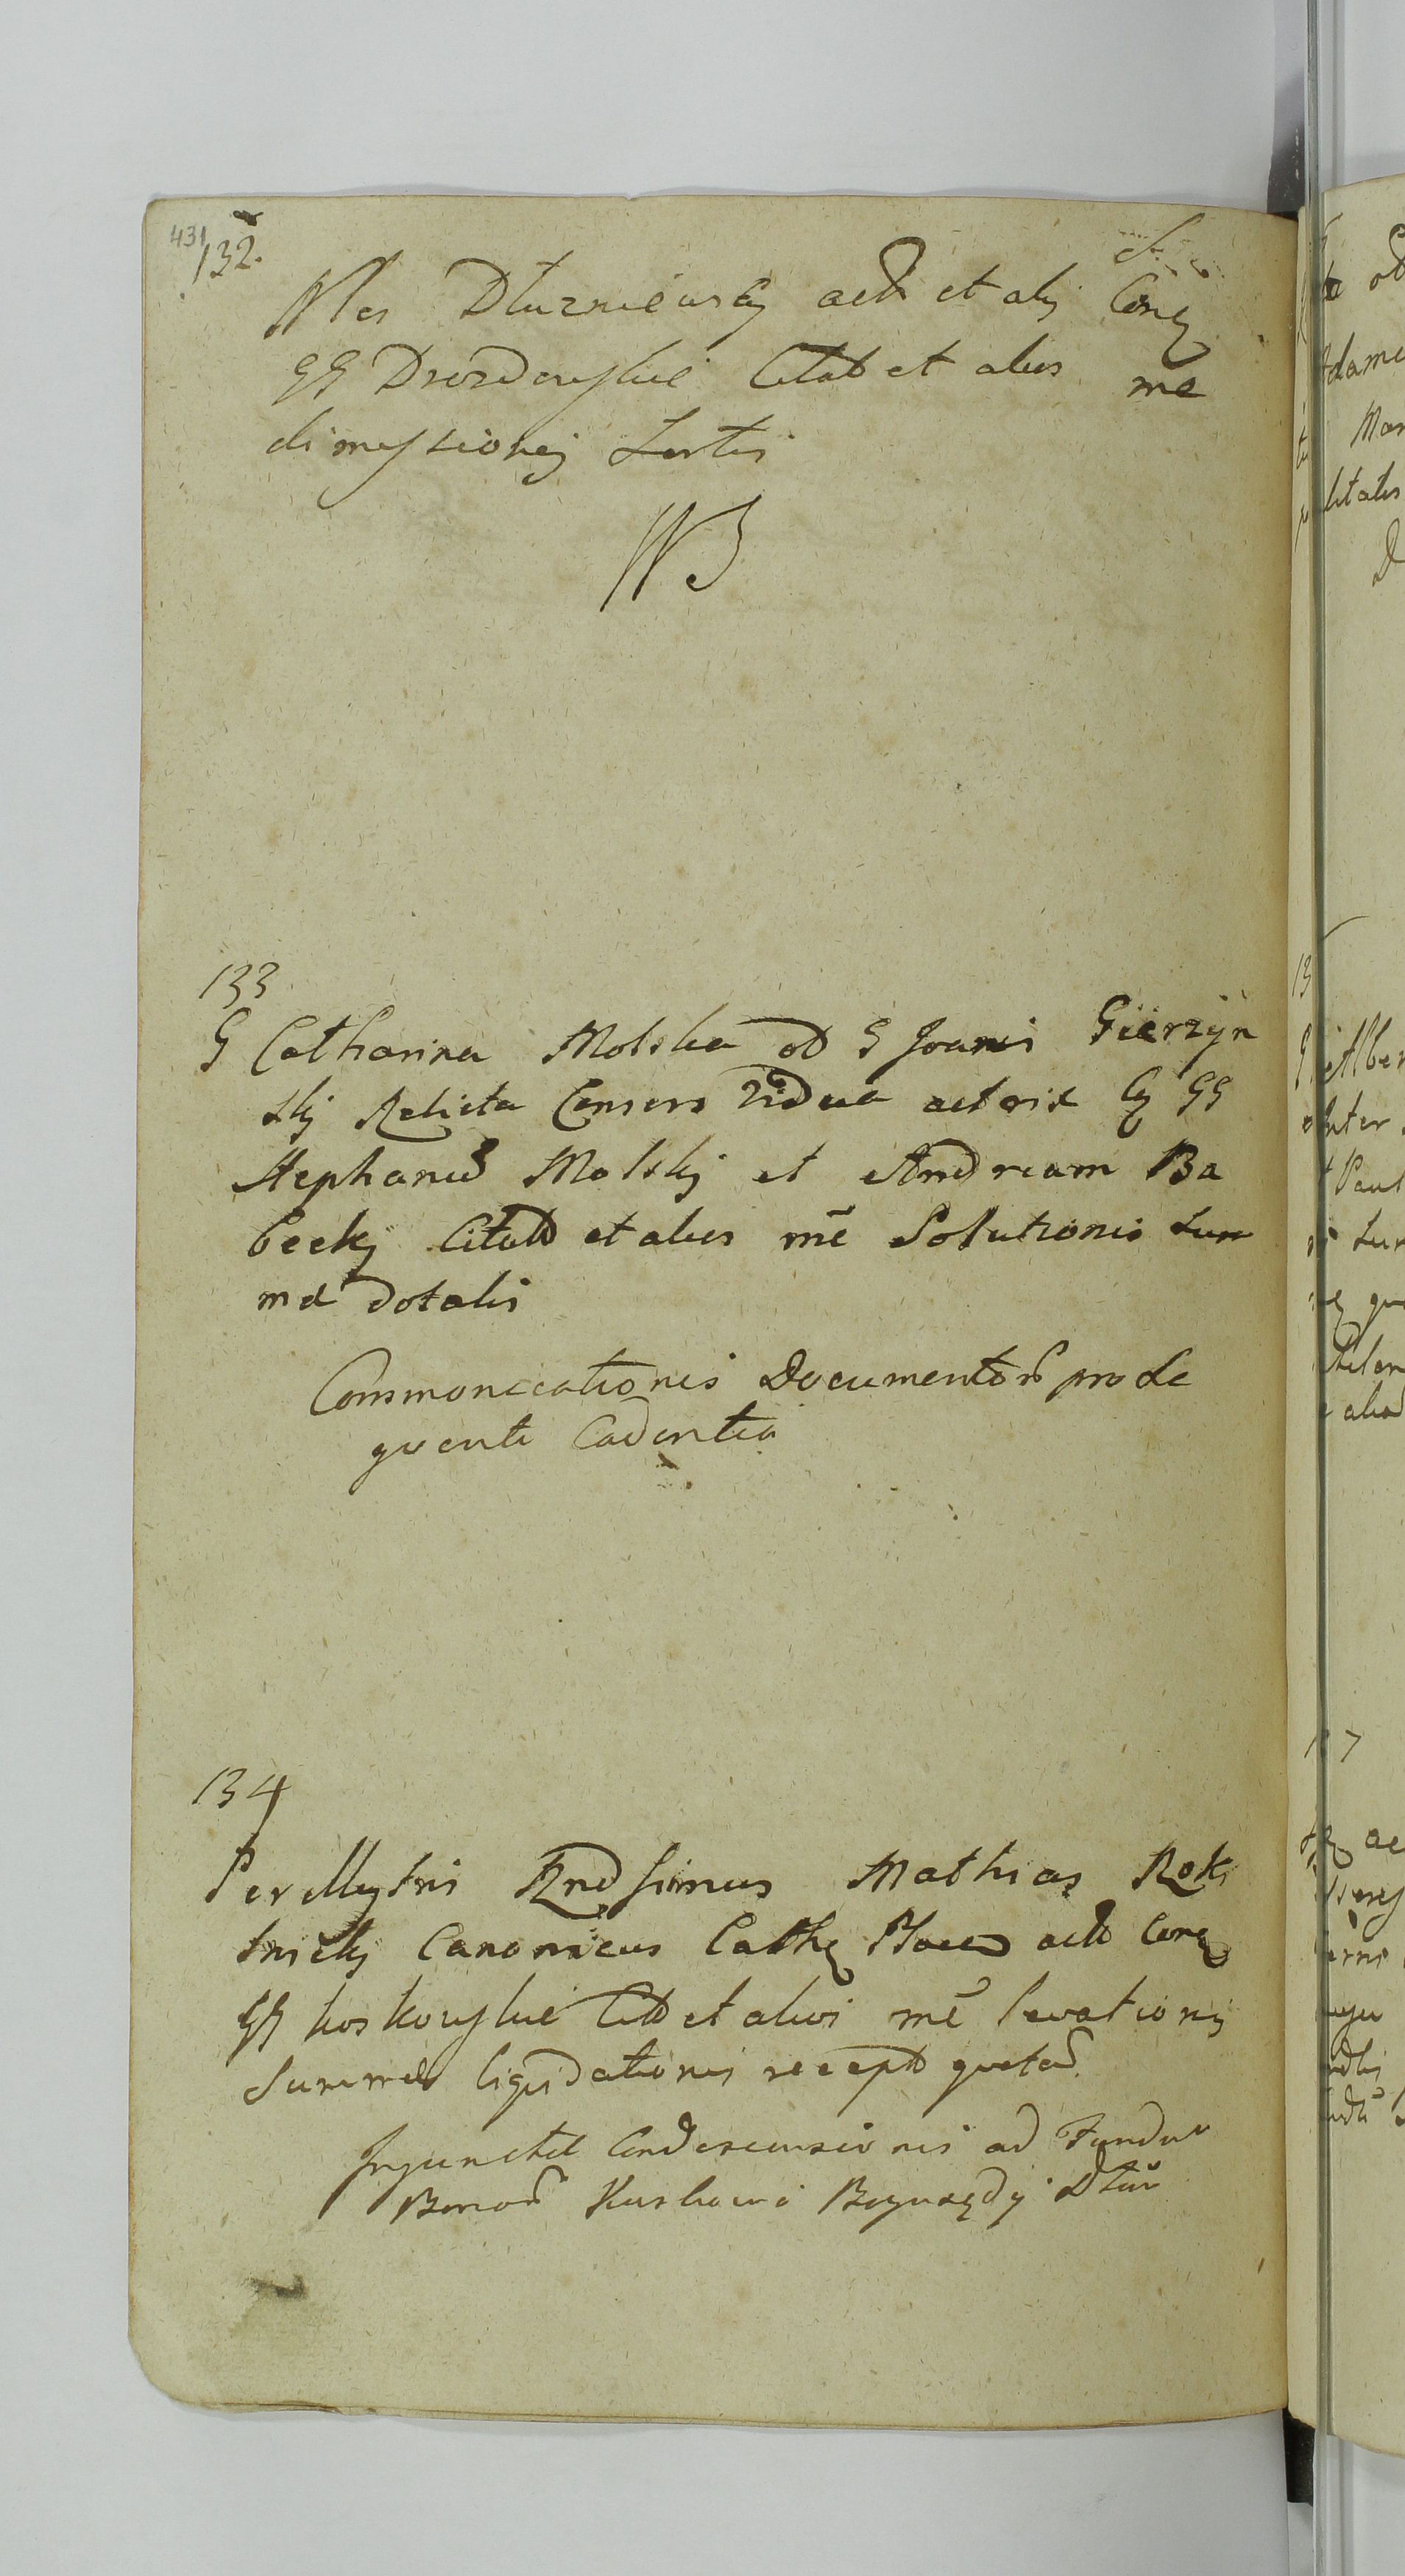 431
132.
Nles Dłuzniewscy act et alij Conq
GG Drozdowskie Citat et alios me
dimissionis Sortis
133
G Catharina Molska od G Joanis Gierzyn
skij Relicta Consors Vidua actorix Cq GG
Stephanum Molskij et Andream Ba
beckij Citatt et alios mē Solutionis Sum
mæ dotalis
Communicationis Documentor pro Se
quenti Cadentia
134
Perillustris Rndssimus Mathias Rok
snickij Canonicus Cathq act Conq
GG koskowskie Citt et alios mē levationis
Summæ liquidationis recept quietað
Injunctæ Condescensionis ad Fundū
Bonor